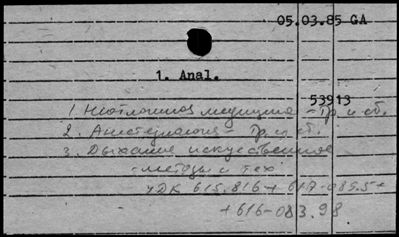 05.03.85 GA
1. Anal.
53913
1 Неотложная медицина - Тр. и сб.
2. Анестезиология - Тр. и сб.
3. Дыхание искусственное
- методы и тех
УДК 615.816 + 617-089.5 +
+ 616-083.98